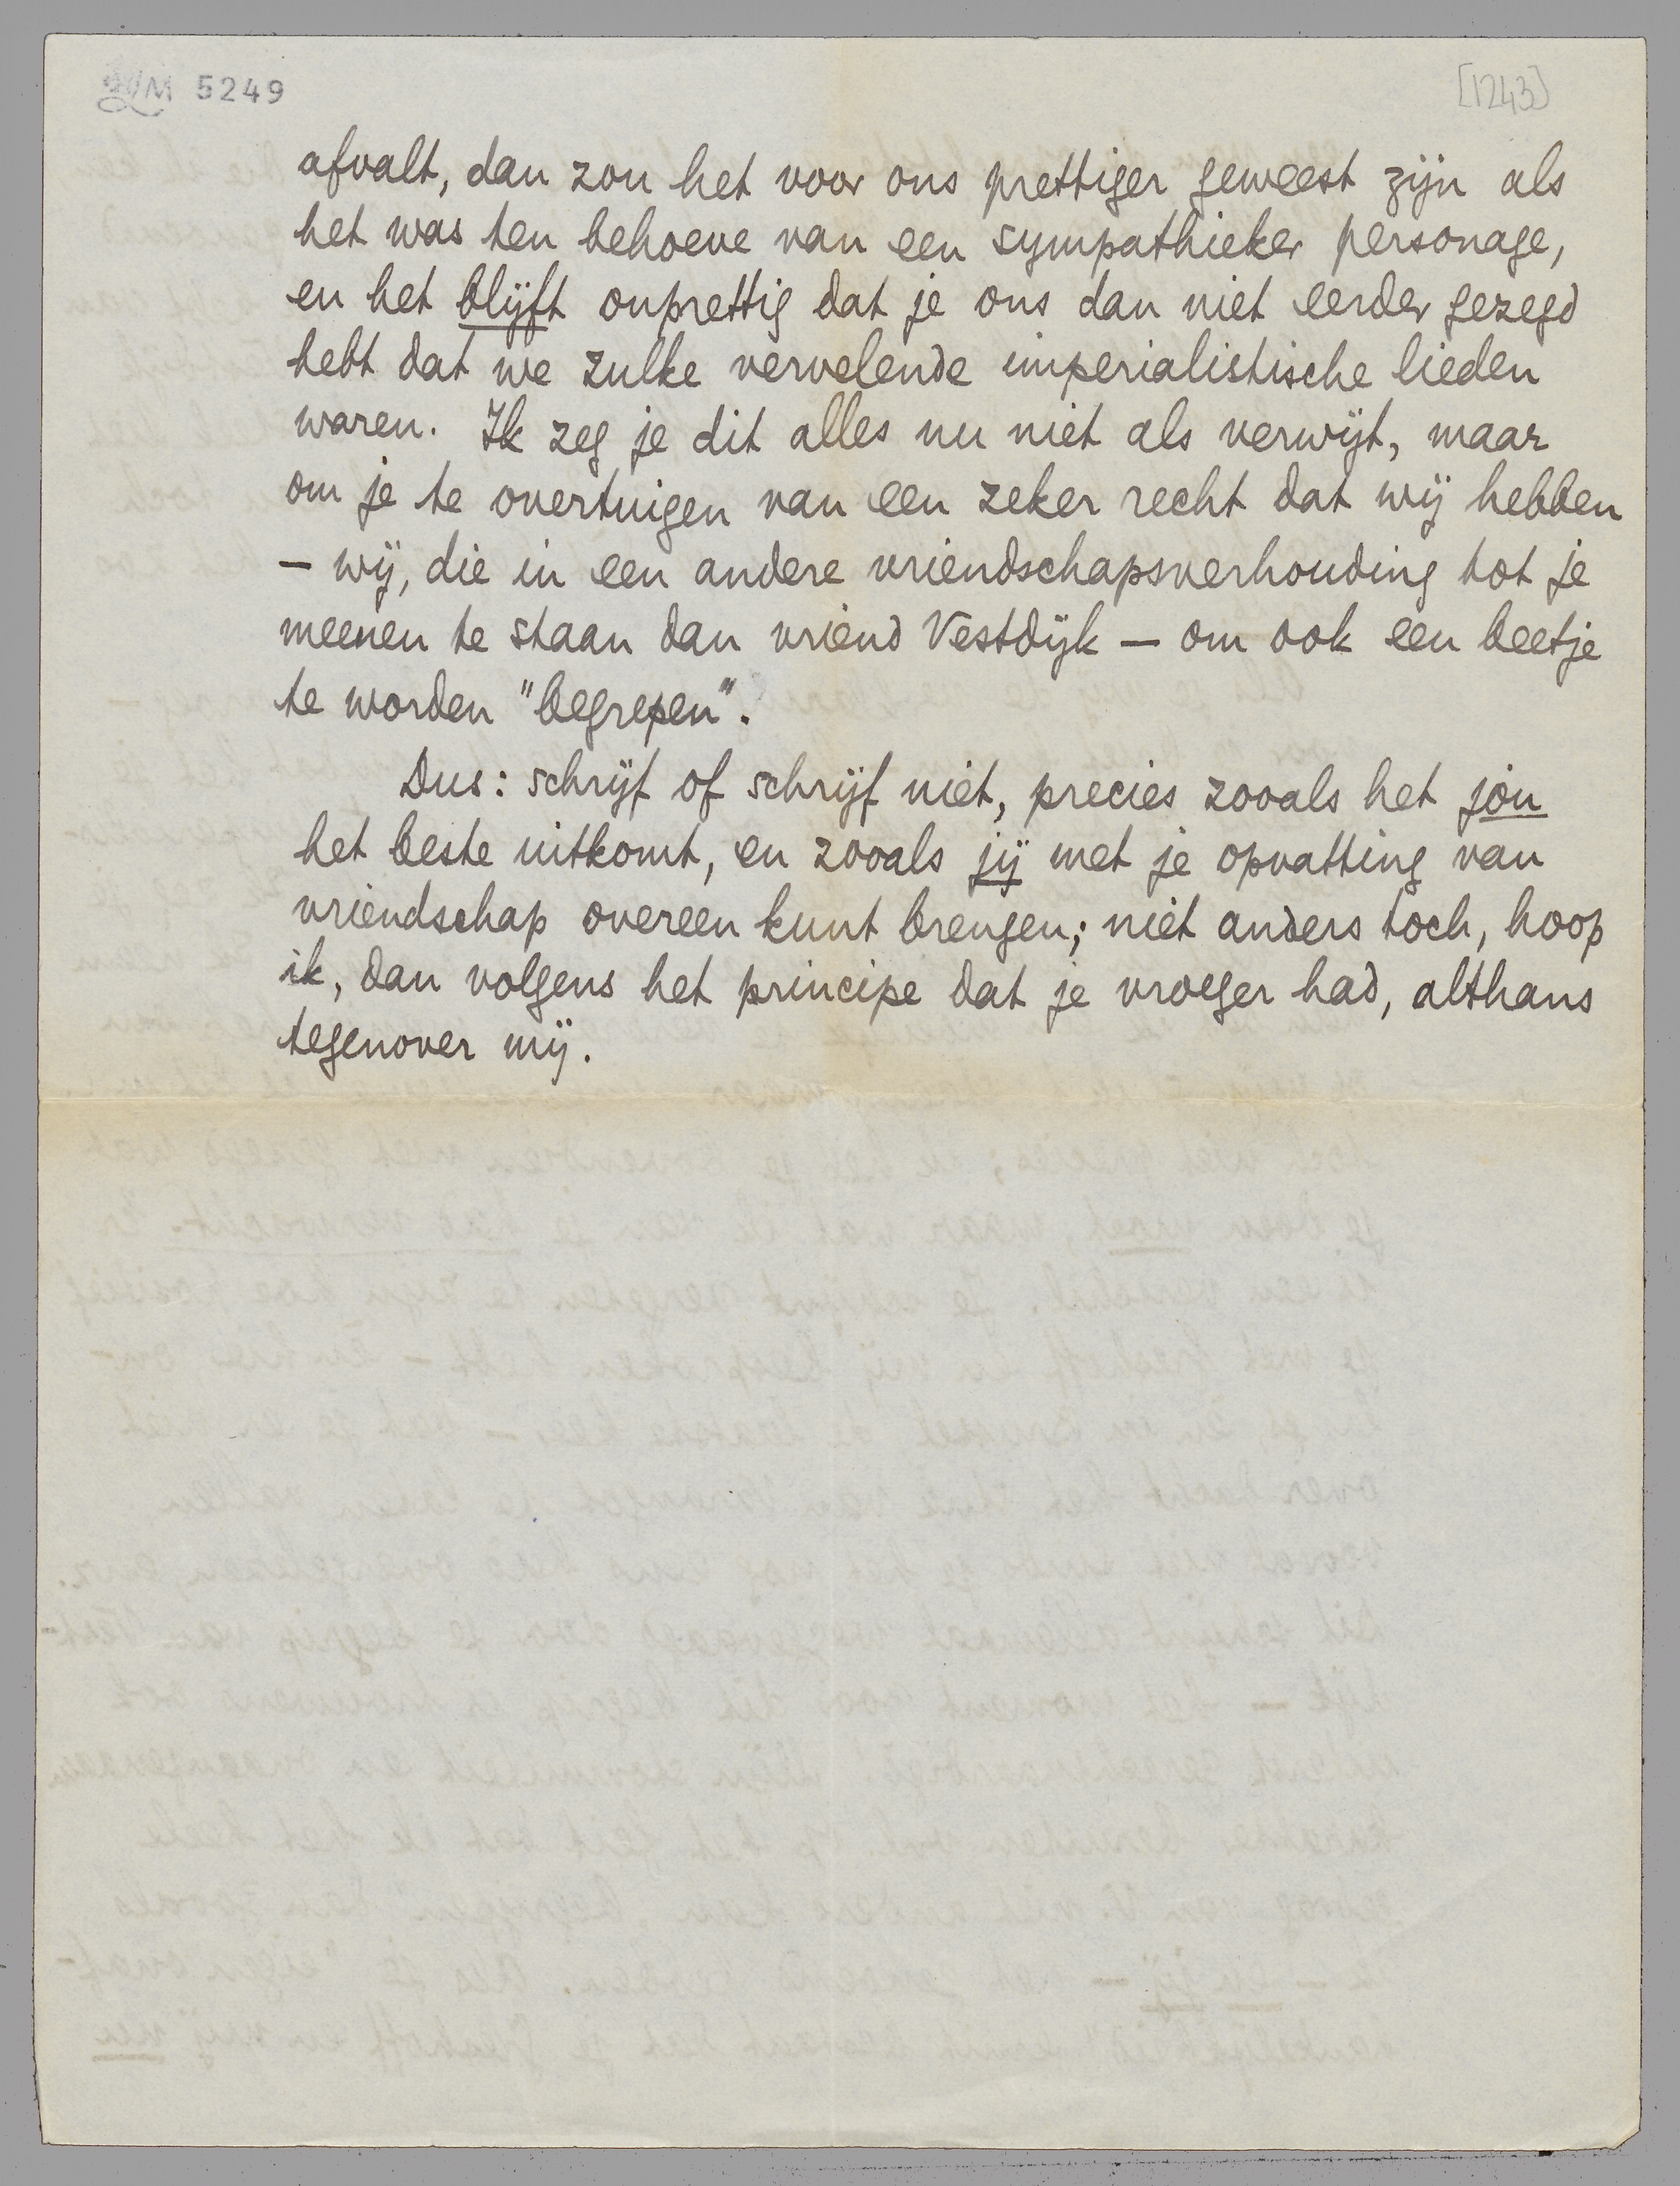 5249
[1243]
afvalt, dan zou het voor ons prettiger geweest zijn als
het was ten behoeve van een sympathieker personage,
en het blijft onprettig dat je ons dan niet eerder gezegd
hebt dat we zulke vervelende imperialistische lieden
waren. Ik zeg je dit alles nu niet als verwijt, maar
om je te overtuigen van een zeker recht dat wij hebben
— wij, die in een andere vriendschapsverhouding tot je
meenen te staan dan vriend Vestdijk — om ook een beetje
te worden "begrepen".
Dus: schrijf of schrijf niet, precies zooals het jou
het beste uitkomt, en zooals jij met je opvatting van
vriendschap overeen kunt brengen; niet anders toch, hoop
ik, dan volgens het principe dat je vroeger had, althans
tegenover mij.